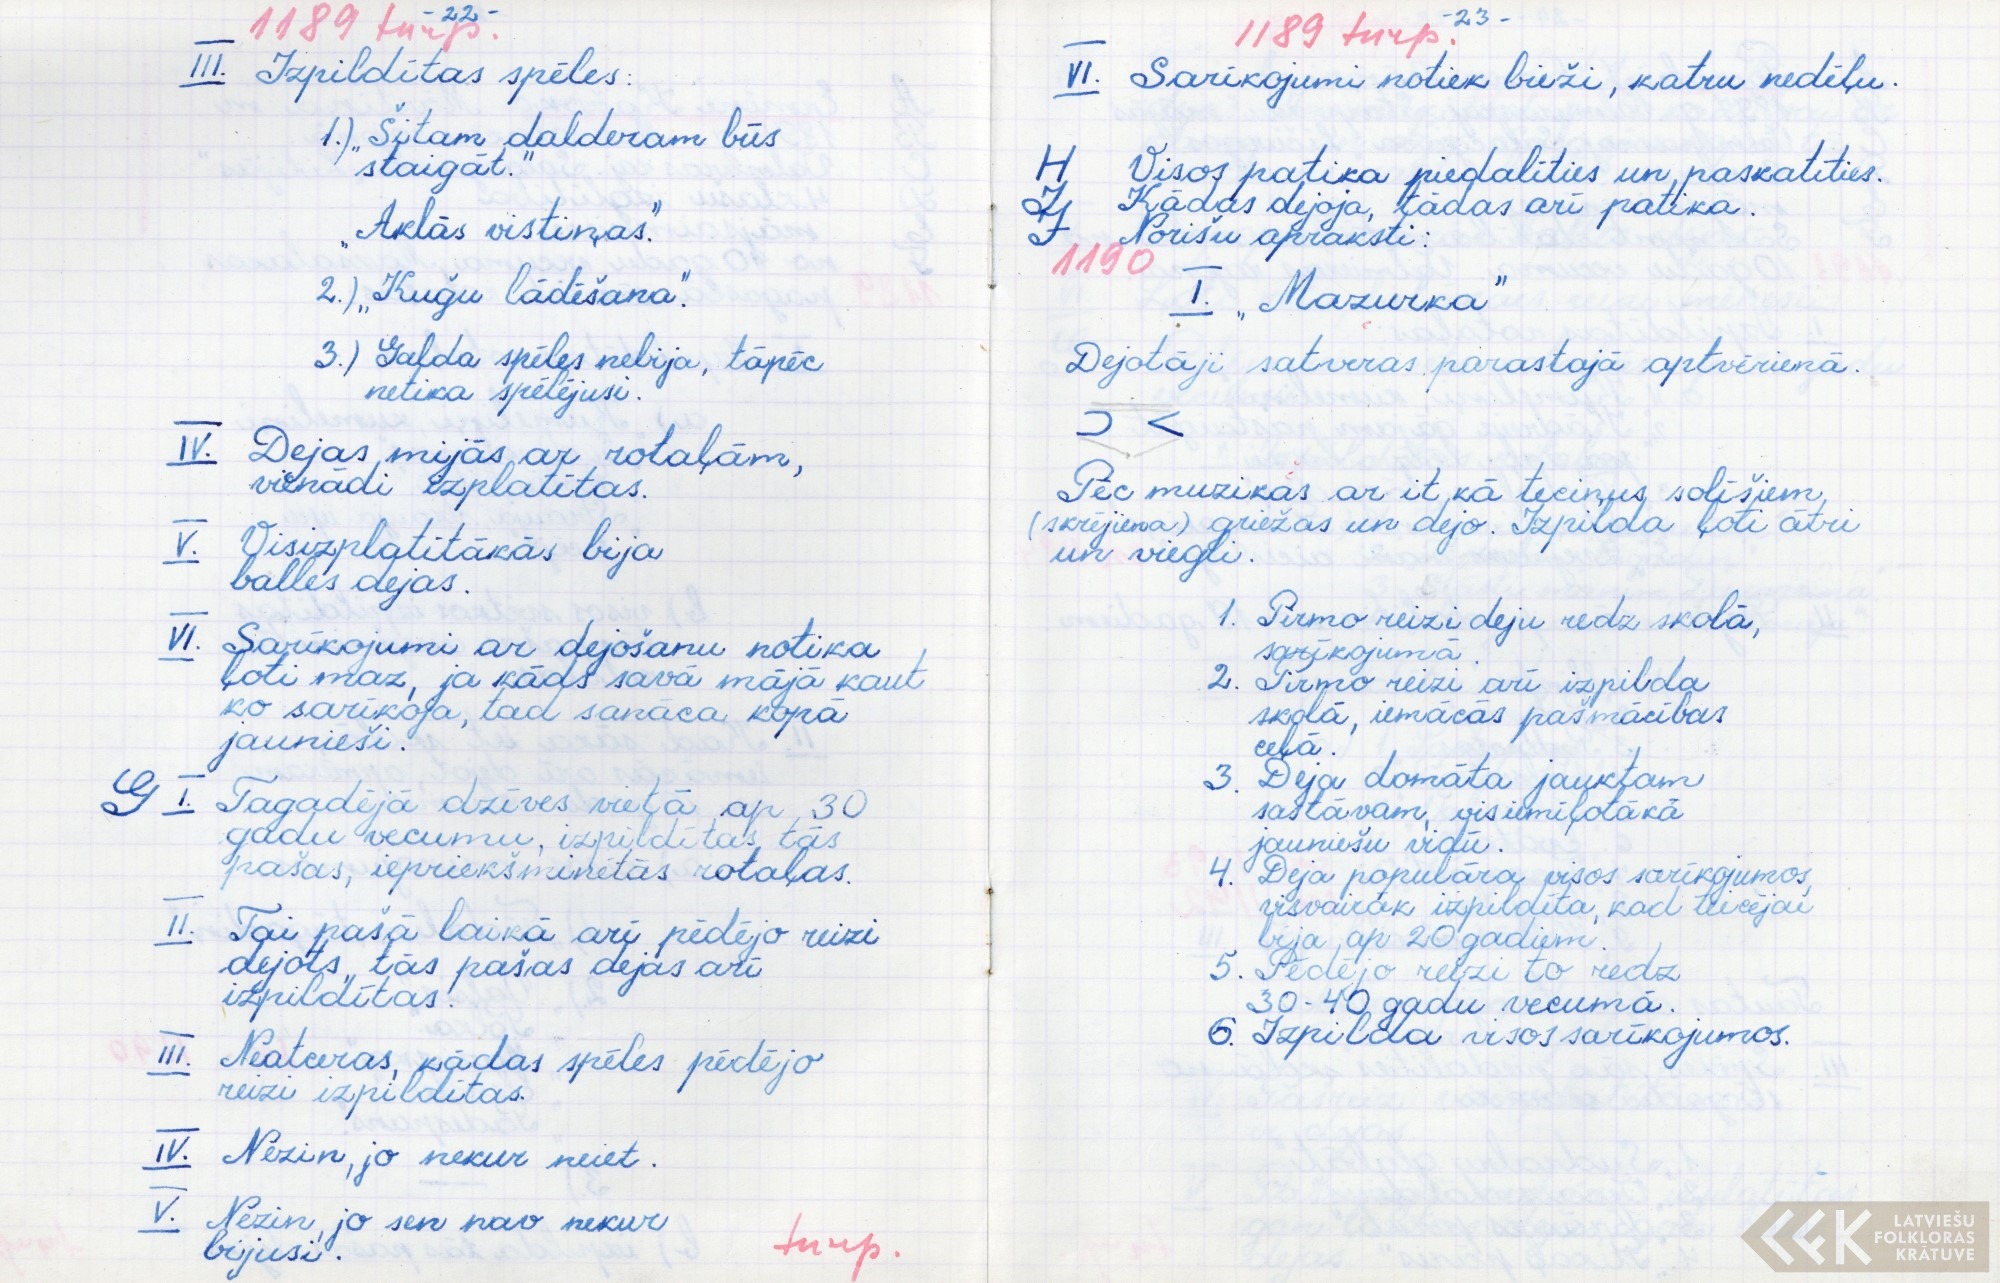 -22-
1189 turp.
III. Izpildītas spēles:
1.) „Šitam dalderam būs
staigāt."
„Aklās vistiņas".
2.) „Kuģu lādēšana".
3.) Galda spēles nebija, tāpēc
netika spēlējusi.
IV. Dejas mijās ar rotaļām,
vienādi izplatītas.
V. Visizplatītākās bija
balles dejas.
VI. Sarīkojumi ar dejošanu notika
ļoti maz, ja kāds savā mājā kaut
ko sarīkoja, tad sanāca kopā
jaunieši.
G I. Tagadējā dzīves vietā ap 30
gadu vecumu, izpildītas tās
pašas, iepriekšminētās rotaļas.
II. Tai pašā laikā arī pēdējo reizi
dejots, tās pašas dejas arī
izpildītas.
III. Neatceras, kādas spēles pēdējo
reizi izpildītas.
IV. Nezin, jo nekur neiet.
V. Nezin, jo sen nav nekur
bijusi.
turp.
-23-
1189 turp.
VI. Sarīkojumi notiek bieži, katru nedēļu.
H Visos patika piedalīties un paskatīties.
I Kādas dejoja, tādas arī patika.
J Norišu apraksti:
1190
I. „Mazurka"
Dejotāji satveras parastajā aptvērienā.
⊃ <
Pēc muzikas ar it kā teciņus solīšiem
(skrējiena) griežas un dejo. Izpilda ļoti ātri
un viegli.
1. Pirmo reizi deju redz skolā,
sarīkojumā.
2. Pirmo reizi arī izpilda
skolā, iemācās pašmācības
ceļā.
3. Deja domāta jauktam
sastāvam, visiemīļotākā
jauniešu vidū.
4. Deja populāra visos sarīkojumos,
visvairāk izpildīta, kad teicējai
bija ap 20 gadiem.
5. Pēdējo reizi to redz
30-40 gadu vecumā.
6. Izpilda visos sarīkojumos.
LATVIEŠU
FOLKLORAS
KRĀTUVE